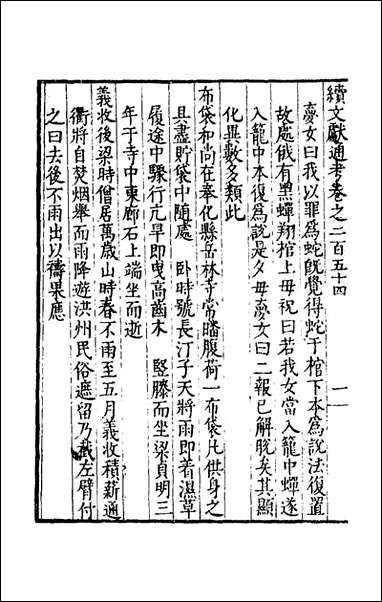 續文獻通考卷之二百五十四
一
夢女曰我以罪為蛇既覺得蛇于棺下本為說法復置
故處俄有黑蟬翔棺上毋祝曰若我女當入籠中蟬遂
入籠中本復為說是夕毋夢女曰二報已解脫矣其顯
化異數多類此
布袋和尚在奉化縣岳林寺常皤腹荷一布袋凡供身之
具盡貯袋中随處 卧時號長汀子天將雨即着濕草
履途中驟行亢旱即曳高齒木 竪膝而坐梁貞明三
年于寺中東廊石上端坐而逝
義收後梁時僧居萬歲山時春不雨至五月義收積薪通
衢將自焚烟舉而雨降遊洪州民俗遮留乃 左臂付
之曰去後不雨出以禱果應